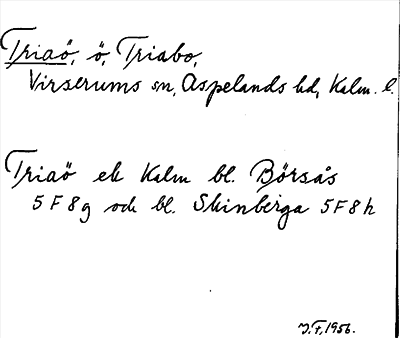 Triaö, ö, Triabo,
Virserums sn, Aspelands hd, Kalm. l.
Triaö ek Kalm bl. Börsås
5 F 8 g och bl. Skinberga 5 F 8 h
J.F, 1956.